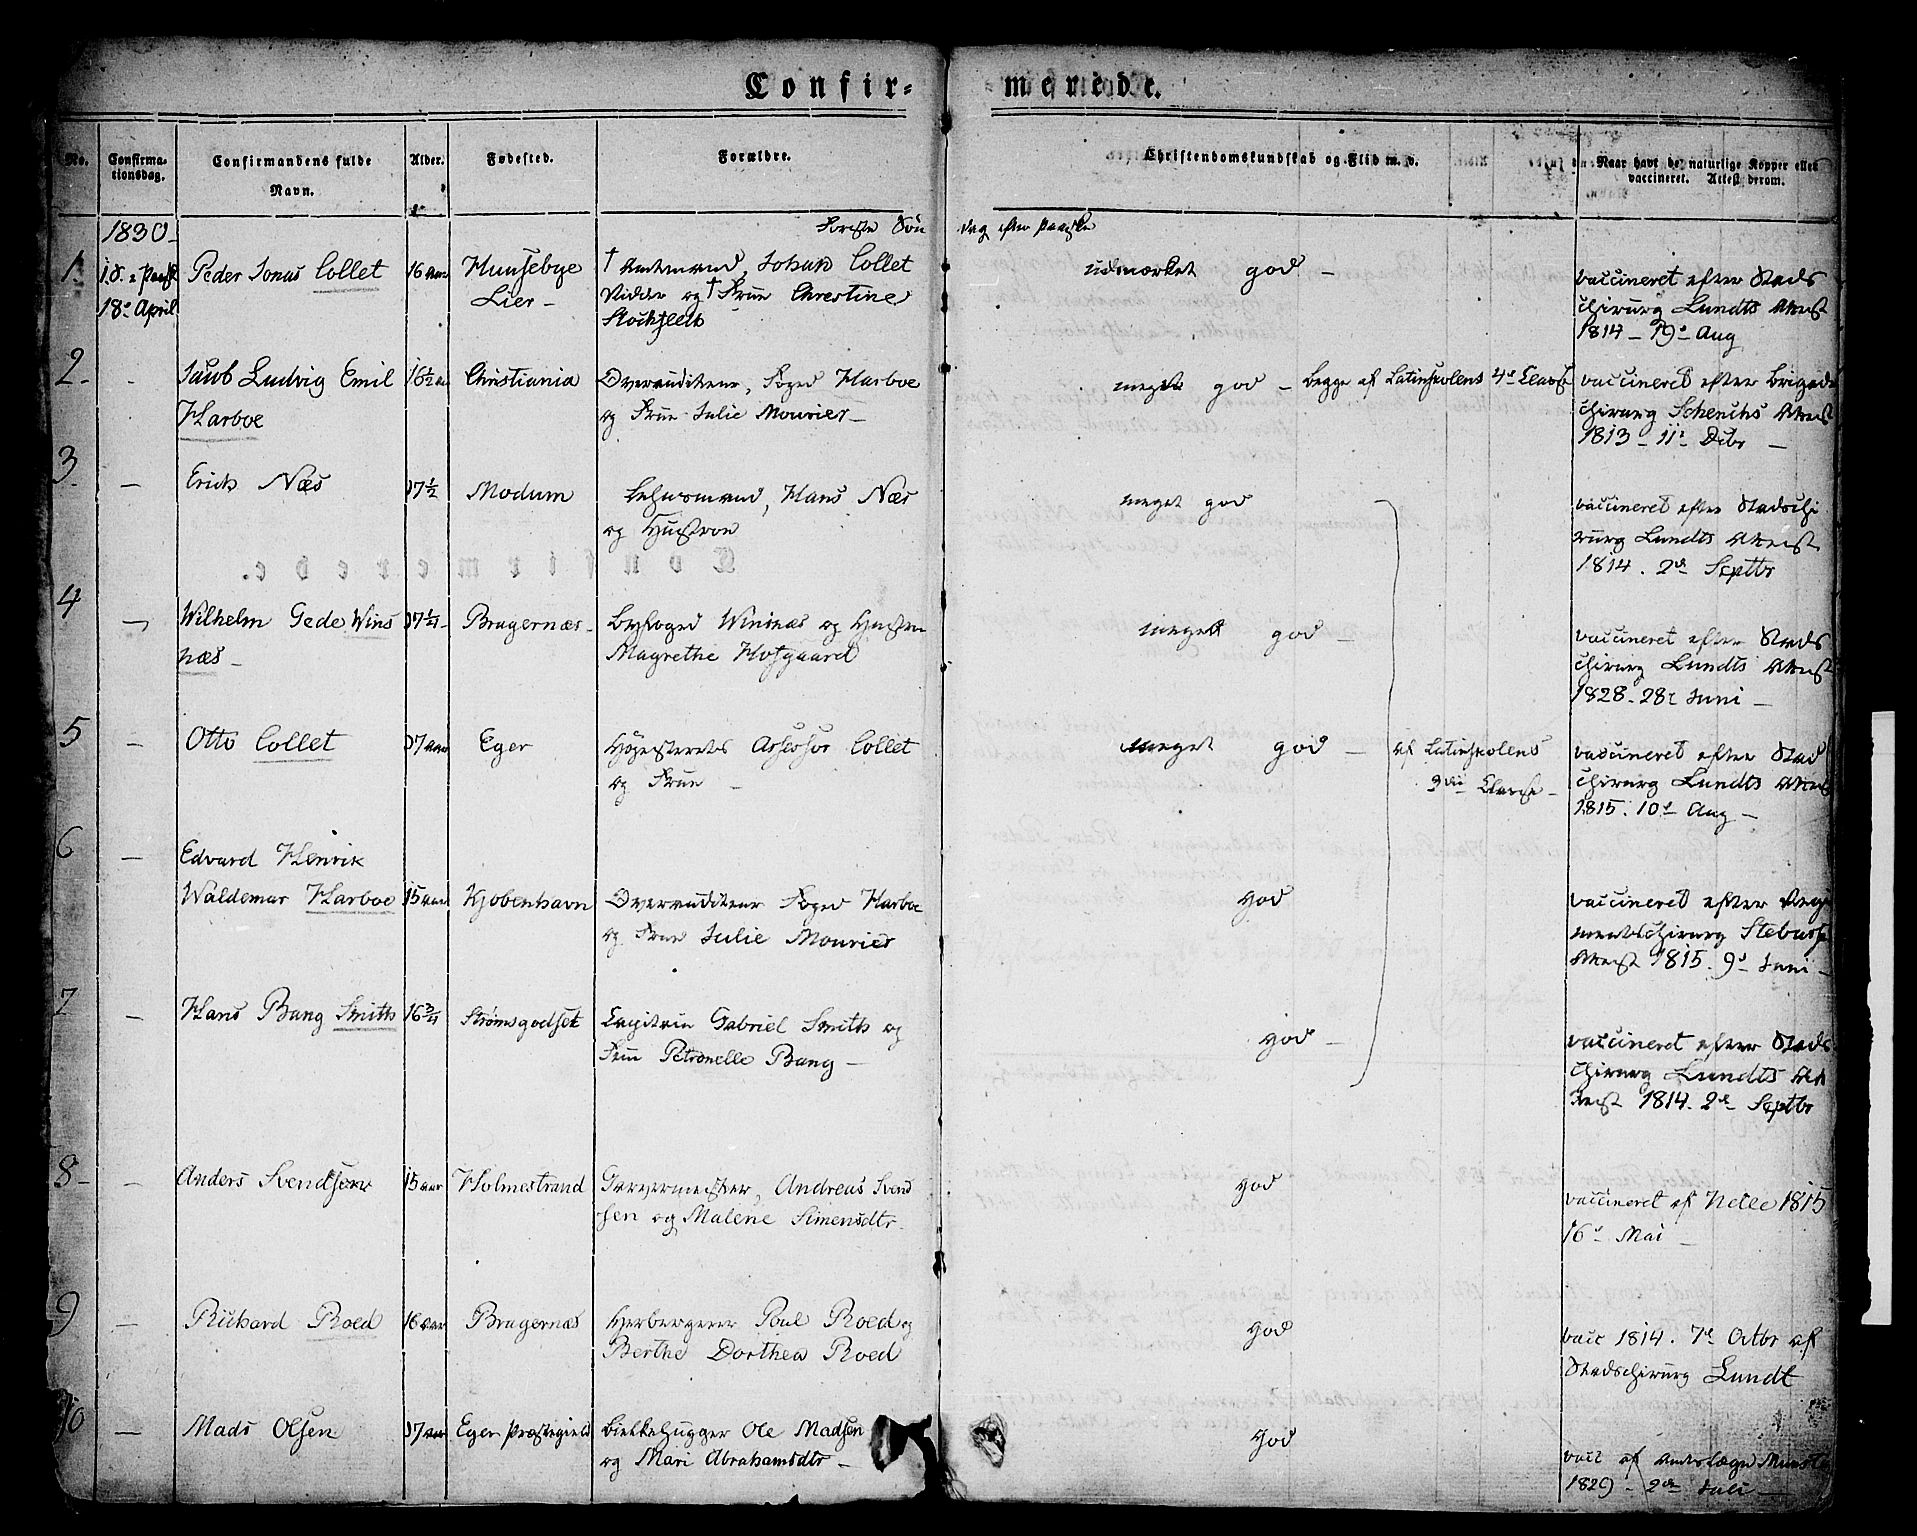 Confir=
merede.
No.
Confirma-
tionsdag.
Confirmandens fulde
Navn.
Alder.
Fødested.
Forældre.
Christendomskundskab og Flid m. v.
Naar havt de naturlige Kopper eller
vaccineret. Attest derom.
1830
Første Søn
dag efter Paaske
1.
18e April
Peder Jonas Collet
16 aar
Huusebye
Lier -
† Amtmand, Johan Collet
Ridder og † Frue Christine
Stockfleth
udmærket god -
vaccineret efter Stads
chirurg Lundts Attest
1814 - 19e Aug
2 -
-
Jacob Ludvig Emil
Harboe
16½ aar
Christiania
Overauditeur, Foged Harboe
og Frue Julie Mourier -
meget god - begge af Latinskolens 4de Classe
vaccineret efter Brigade
chirurg Schencks Attest
1813 - 11e Decbr -
3.
-
Erich Næs
17½
Modum
Lehnsmand, Hans Næs
og Hustroe
meget god
vaccineret efter Stadschi
rurg Lundts Attest
1814. 2de Septbr
4
-
Wilhelm Gede Wins
næs -
17¼
Bragernæs -
Byfoged Winsnæs og Hustru
Magrethe Hofgaard
meget god -
vaccineret efter Stads
chirurg Lundts Attest
1828. 28e Juni -
5
-
Otto Collet
17 aar
Eger
Høiesterets Assessor Collet
og Frue -
meget god -
af Latinskolens
3die Classe -
vaccineret efter Stad
chirurg Lundts Attest
1815. 10de Aug -
6
-
Edvard Henrik
Waldemar Harboe
15 aar
Kjøbenhavn
Overauditeur Foged Harboe
og Frue Julie Mourier
god
vaccineret efter Regi
mentschirurg
Attest 1815. 9e Juni -
7
-
Hans Bang Smith
16¾
Strømsgodset
Capitain Gabriel Smith og
Frue Petronelle Bang -
god -
vaccineret efter Stads
chirurg Lundts At
test 1814. 2de Septbr
8 -
-
Anders Svendsen
15 aar
Holmestrand
Garvermester, Andreas Svend
sen og Malene Simensdtr.
god
vaccineret af Nelle 1815
16e Mai -
9
-
Richard Roed
16 aar
Bragernæs
Herbergerer Poul Roed og
Berthe Dorthea Roed
god
vacc 1814. 7de Octbr af
Stadschirurg Lundt
10
-
Mads Olsen
17 aar
Eger Præstegield
Bielkehugger Ole Madsen
og Mari Abrahamsdtr -
god
vacc af
1829 - 2den Juli -